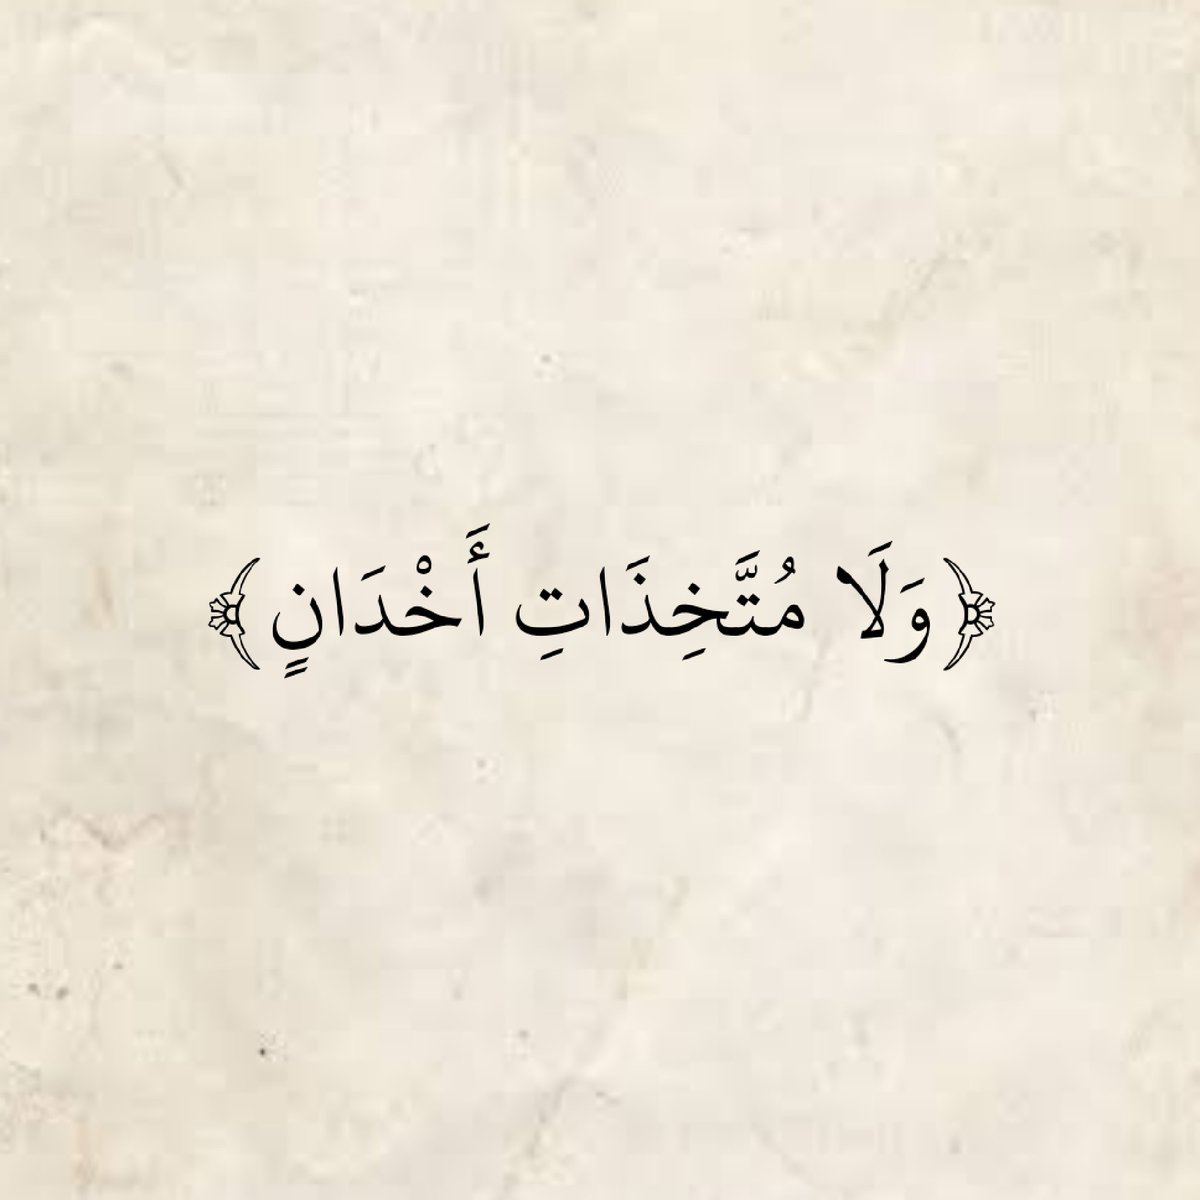 ﴿وَلَا مُتَّخِذَاتِ أَخْدَانٍ﴾